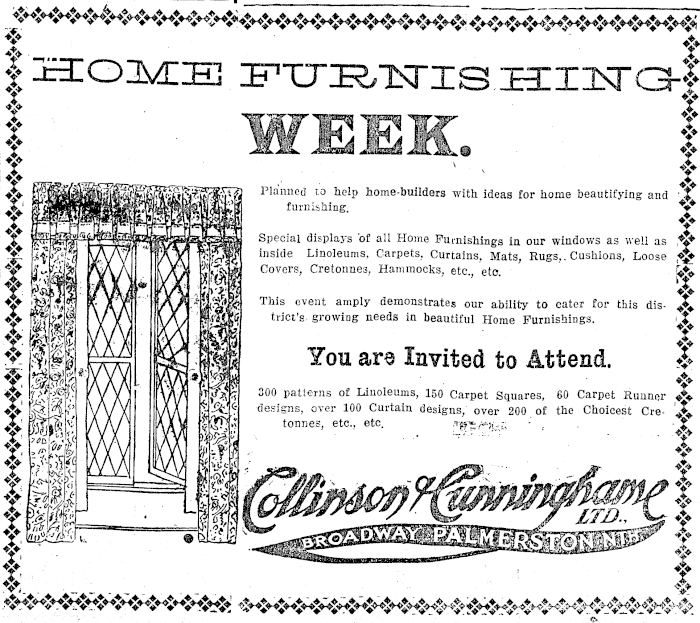 HOME FURNISHING
WEEK.
Planned to help home-builders with ideas for home beautifying and
furnishing.
Special displays of all Home Furnishings in our windows as well as
inside Linoleums, Carpets, Curtains, Mats, Rugs, Cushions, Loose
Covers, Cretonnes, Hammocks, etc., etc.
This event amply demonstrates our ability to cater for this dis-
trict's growing needs in beautiful Home Furnishings.
You are Invited to Attend.
300 patterns of Linoleums, 150 Carpet Squares, 60 Carpet Runner
designs, over 100 Curtain designs, over 200 of the Choicest Cre-
tonnes, etc., etc.
Collinson & Cunninghame
LTD.,
BROADWAY PALMERSTON NTH.